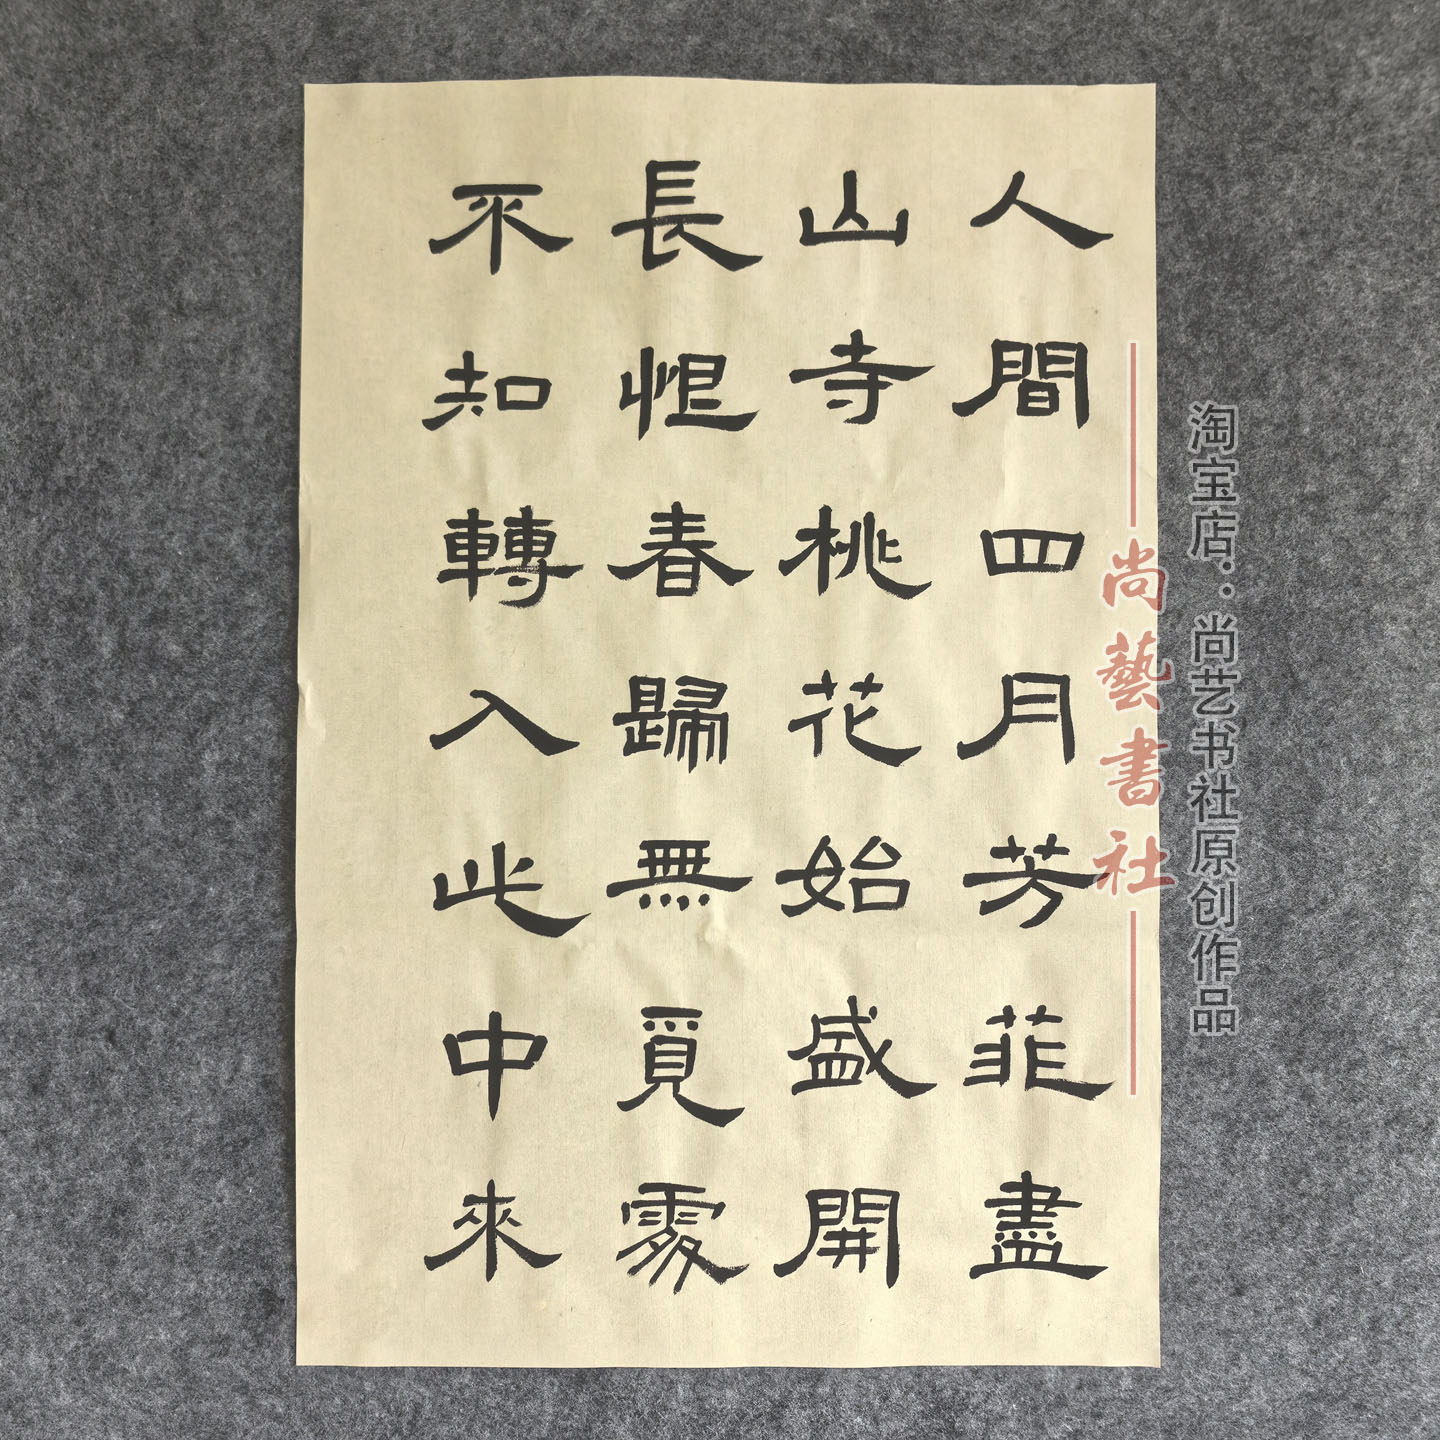 人間四月芳菲盡
山寺桃花始盛開
長恨春歸無覓處
不知轉入此中來
尚藝書社
淘宝店：尚艺书社原创作品